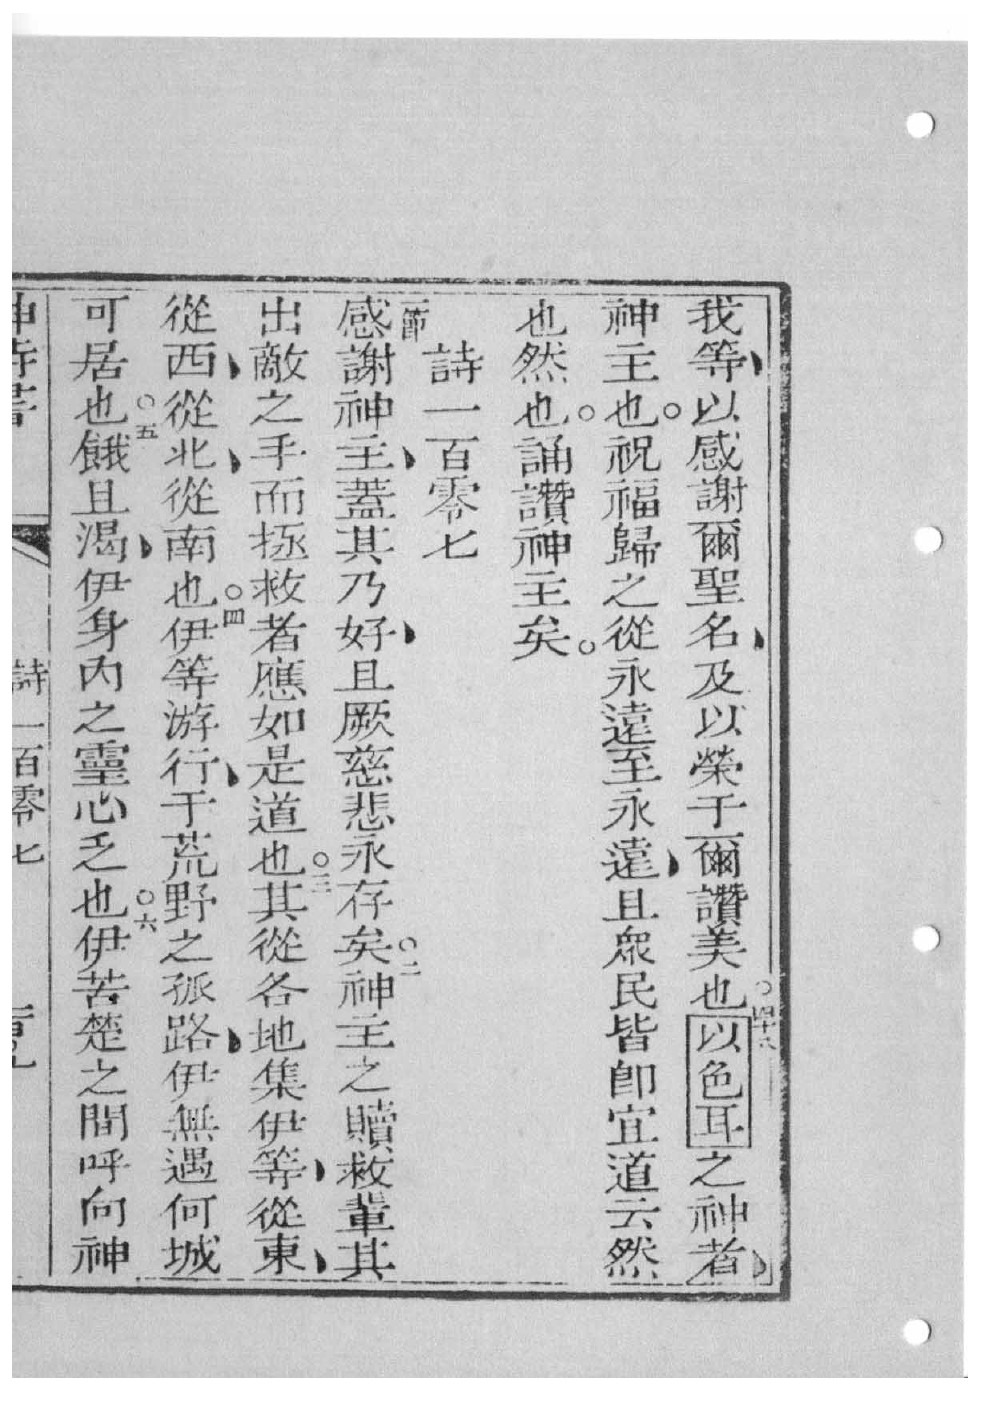 我等以感謝爾聖名及以榮于爾讚美也○四十八以色耳之神者
神主也祝福歸之從永遠至永遠且眾民皆卽宜道云然
也然也誦讚神主矣
詩一百零七
一節感謝神主蓋其乃好且厥慈悲永存矣○二神主之贖救輩其
出敵之手而拯救者應如是道也○三其從各地集伊等從東
從西從北從南也○四伊等游行于荒野之孤路伊無遇何城
可居也○五餓且渴伊身內之靈心乏也○六伊苦楚之間呼向神
神詩書 詩一百零七